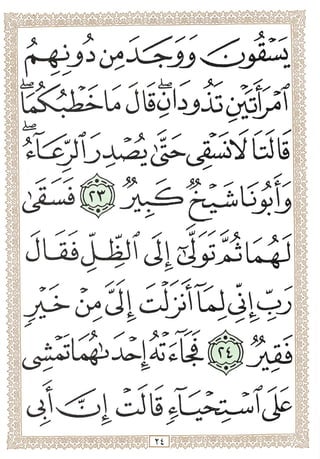 يَسْقُونَ وَوَجَدَ مِن دُونِهِمُ
ٱمْرَأَتَيْنِ تَذُودَانِۖ قَالَ مَا خَطْبُكُمَاۖ
قَالَتَا لَا نَسْقِى حَتَّىٰ يُصْدِرَ ٱلرِّعَآءُۖ
وَأَبُونَا شَيْخٌ كَبِيرٌ ٢٣ فَسَقَىٰ
لَهُمَا ثُمَّ تَوَلَّىٰٓ إِلَى ٱلظِّلِّ فَقَالَ
رَبِّ إِنِّى لِمَآ أَنزَلْتَ إِلَىَّ مِنْ خَيْرٍ
فَقِيرٌ ٢٤ فَجَآءَتْهُ إِحْدَىٰهُمَا تَمْشِى
عَلَى ٱسْتِحْيَآءٍ قَالَتْ إِنَّ أَبِى
٢٤